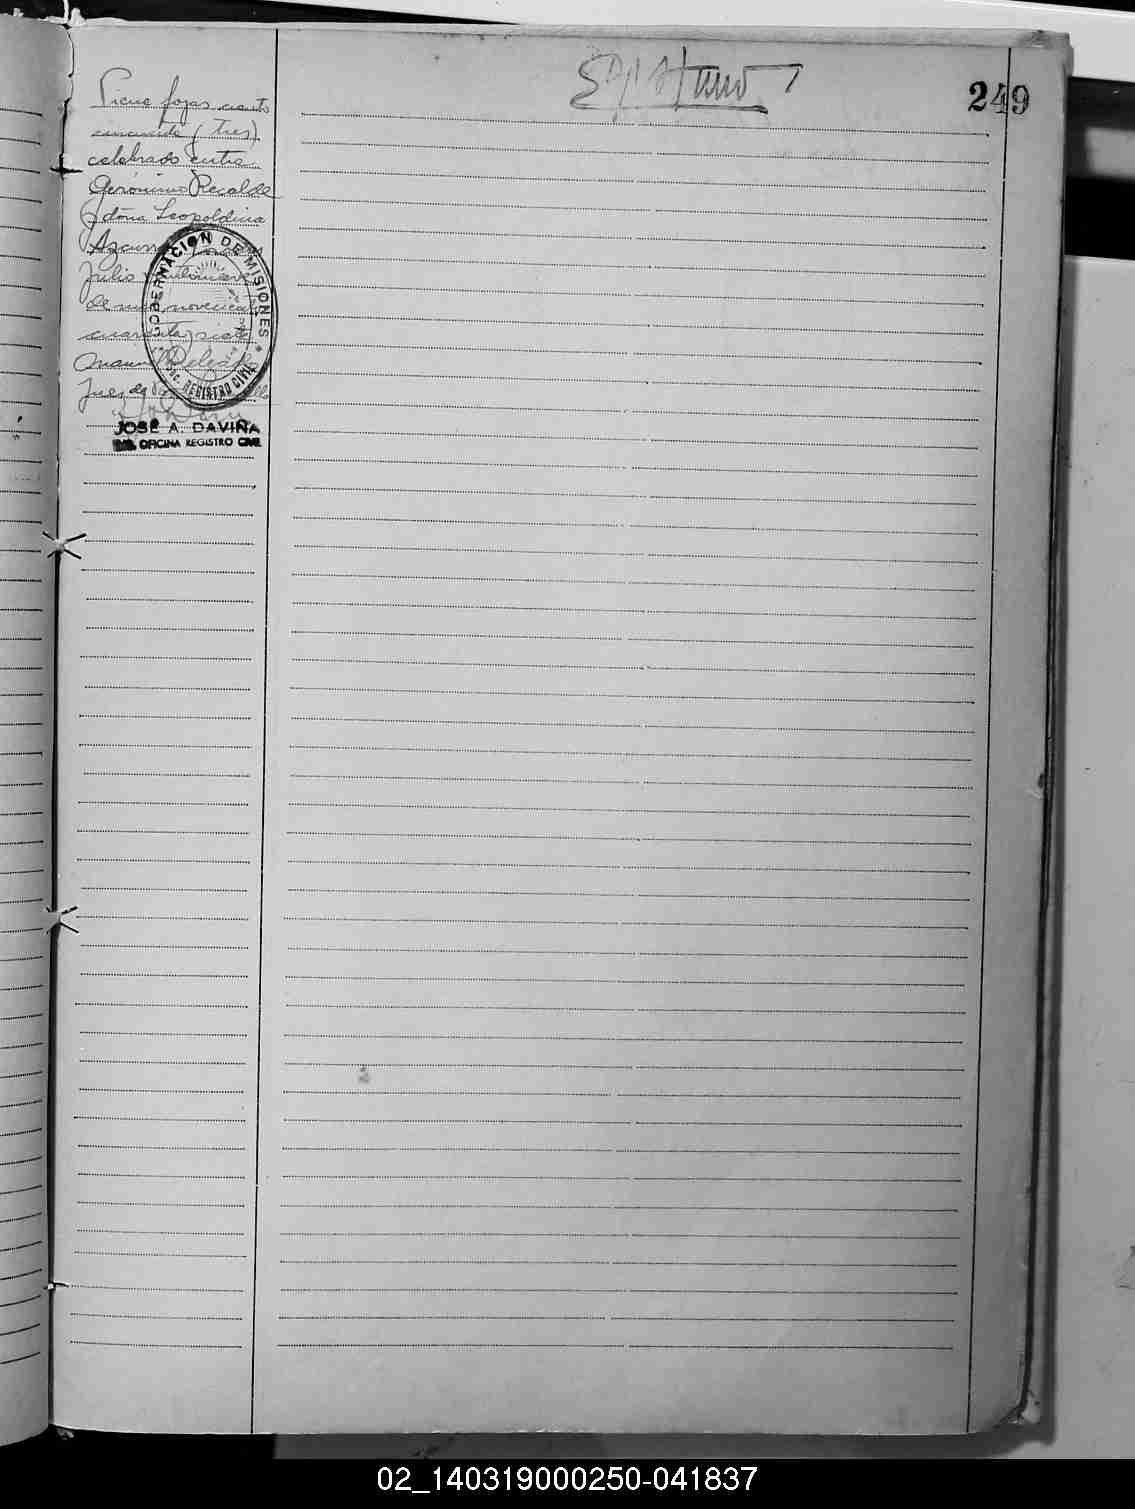 249
fojas ciento
cincuenta (tres)
celebrado entre
Gerónimo Recalde
y doña Leopoldina
Julio veintinueve
de mil novecientos
cuarenta y siete
Juez de Paz
GOBERNACION DE MISIONES
REGISTRO CIVIL
JOSÉ A. DAVIÑA
OFICINA REGISTRO CIVIL
02_140319000250-041837